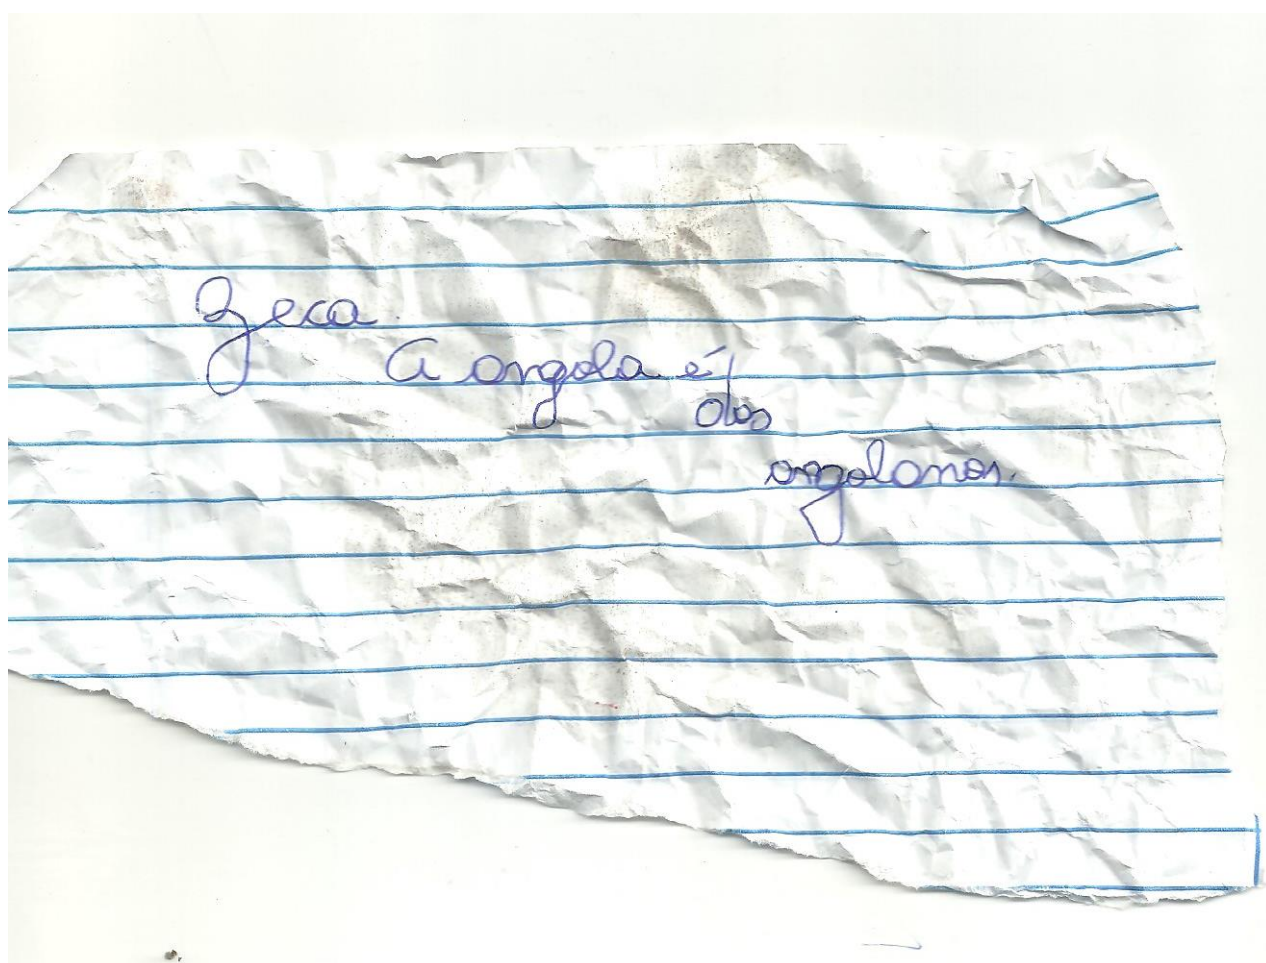 Zeca
A angola é
dos
angolanos.